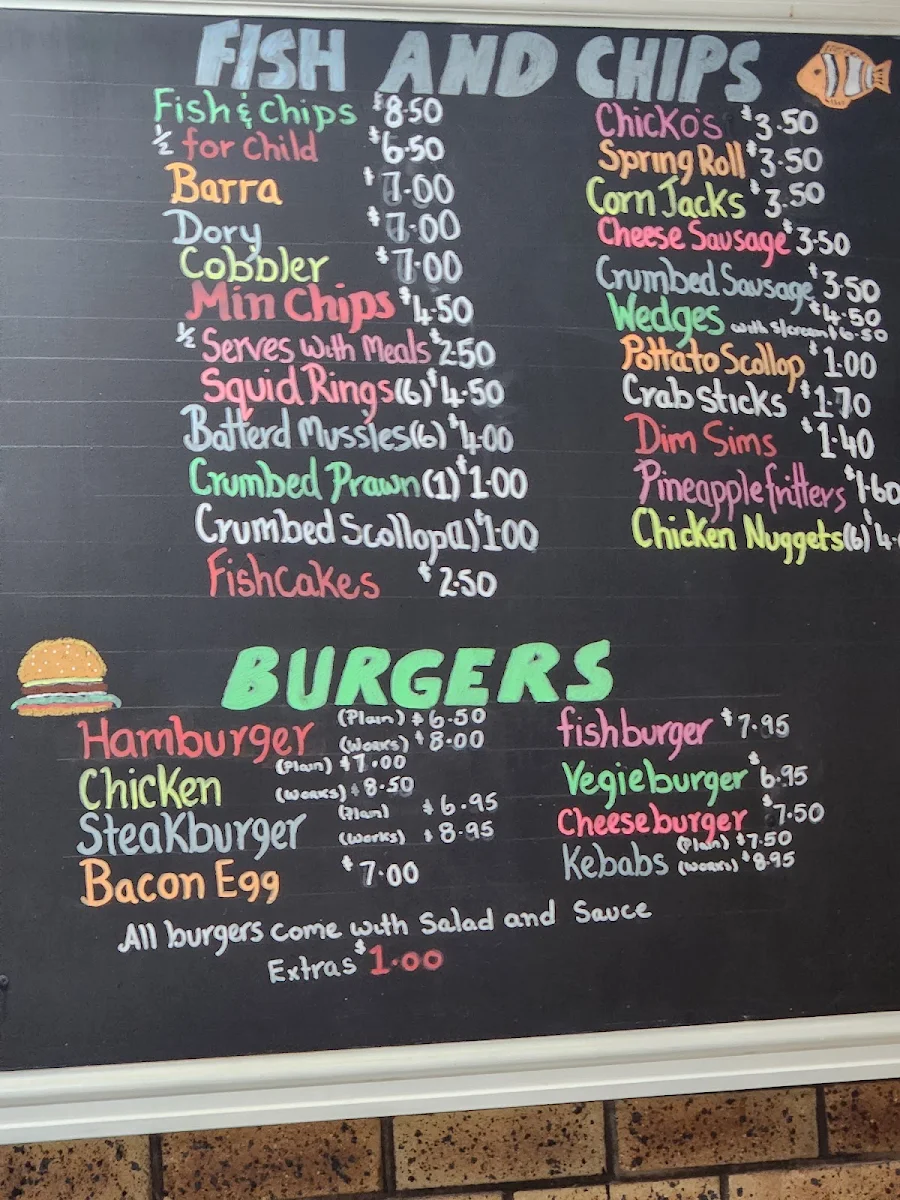 FISH AND CHIPS
Fish & Chips $8.50
1/2 for Child $6.50
Barra $7.00
Dory $7.00
Cobbler $7.00
Min Chips $4.50
1/2 Serves with Meals $2.50
Squid Rings(6) $4.50
Batterd Mussles(6) $4.00
Crumbed Prawn(1) $1.00
Crumbed Scollop(1) $1.00
Fishcakes $2.50
Chicko's $3.50
Spring Roll $3.50
Corn Jacks $3.50
Cheese Sausage $3.50
Crumbed Sausage $3.50
Wedges $4.50
with s/cream $6.50
Pottato Scollop $1.00
Crab Sticks $1.70
Dim Sims $1.40
Pineapple fritters $1.60
Chicken Nuggets(6) $4.
BURGERS
Hamburger (Plain) $6.50
(Works) $8.00
Chicken (Plain) $7.00
(Works) $8.50
Steakburger (Plain) $6.95
(Works) $8.95
Bacon Egg $7.00
fishburger $7.95
Vegieburger $6.95
Cheeseburger $7.50
Kebabs (Plain) $7.50
(Works) $8.95
All burgers come with Salad and Sauce
Extras $1.00